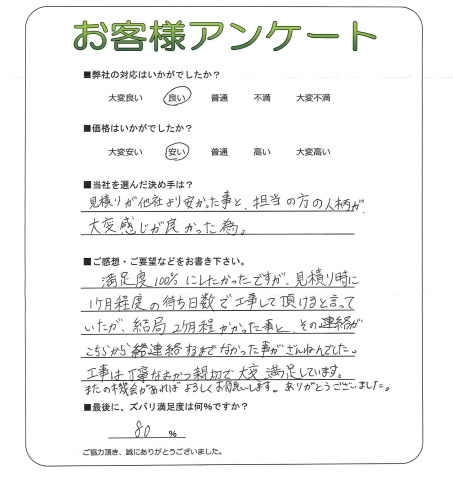 お客様アンケート
■弊社の対応はいかがでしたか？
大変良い 良い 普通 不満 大変不満
■価格はいかがでしたか？
大変安い 安い 普通 高い 大変高い
■当社を選んだ決め手は？
見積りが他社より安かった事と、担当の方の人柄が、
大変感じが良かった為。
■ご感想・ご要望などをお書き下さい。
満足度100%にしたかったですが、見積り時に
1ケ月程度の待ち日数で工事して頂けると言って
いたが、結局2ケ月程かかった事と、その連絡が
こちらから 連絡するまでなかった事がざんねんでした。
工事は丁寧なおかつ親切で大変満足しています。
またの機会があればよろしくお願いします。ありがとうございました。
■最後に、ズバリ満足度は何%ですか？
80 %
ご協力頂き、誠にありがとうございました。